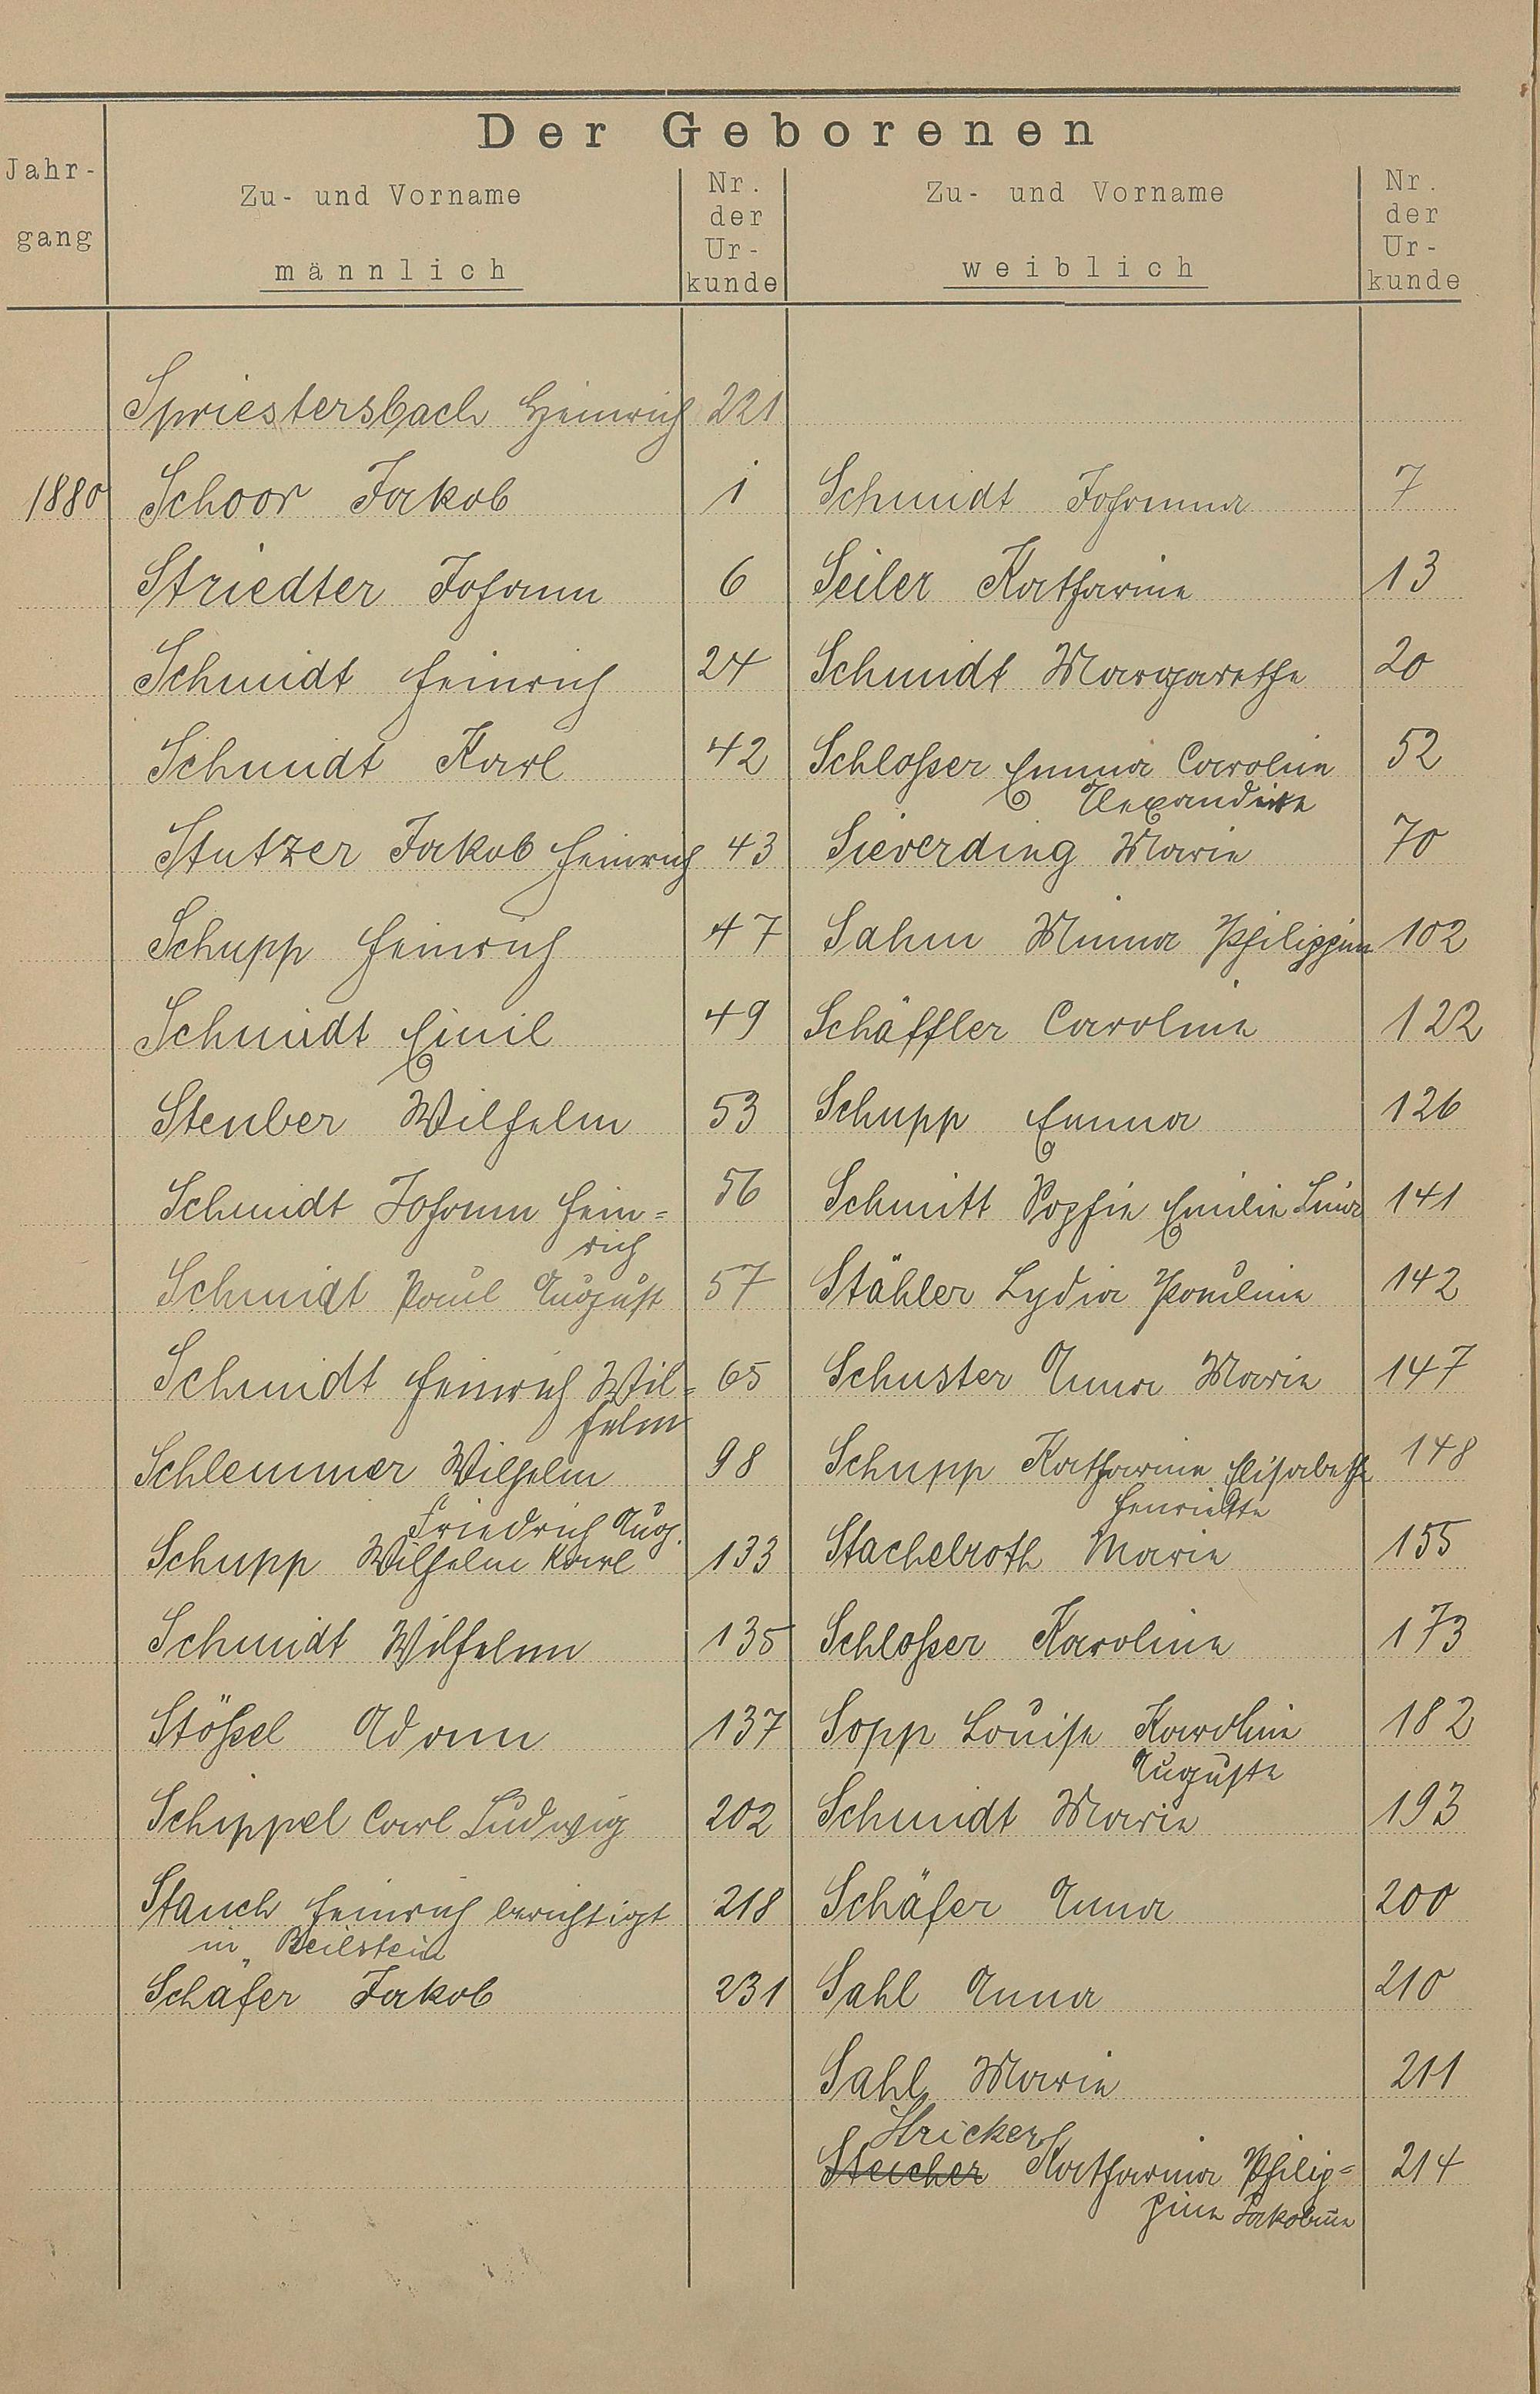 Der Geborenen
Jahr-
gang
Zu- und Vorname
männlich
Nr.
der
Ur-
kunde
Zu- und Vorname
weiblich
Nr.
der
Ur-
kunde
Spriestersbach Heinrich 221
1880 Schoor Jakob 1 Schmidt Johanna 7
Striedter Johann 6 Seiler Katharine 13
Schmidt Heinrich 24 Schmidt Margarethe 20
Schmidt Karl 42 Schloßer Emma Caroline 52
Alexandrine
Stutzer Jakob Heinrich 43 Sieverding Marie 70
Schupp Heinrich 47 Sahm Minna Philippine 102
Schmidt Emil 49 Schäffler Caroline 122
Steuber Wilhelm 53 Schupp Emma 126
Schmidt Johann Hein= 56 Schmitt Sophie Emilie Lina 141
rich
Schmidt Paul August 57 Stähler Lydia Pauline 142
Schmidt Heinrich Wil= 65 Schuster Anna Marie 147
helm
Schlemmer Wilhelm 98 Schupp Katharine Elisabethe 148
Friedrich Aug. Henriette
Schupp Wilhelm Karl 133 Stachelroth Marie 155
Schmidt Wilhelm 135 Schloßer Karoline 173
Stößel Adam 137 Sopp Louise Karoline 182
Auguste
Schippel Carl Ludwig 202 Schmidt Marie 193
Stauch Heinrich berichtigt 218 Schäfer Anna 200
in "Beilstein
Schäfer Jakob 231 Sahl Anna 210
Sahl Marie 211
Stricker
Steicher Katharina Philip= 214
pine Jakobine